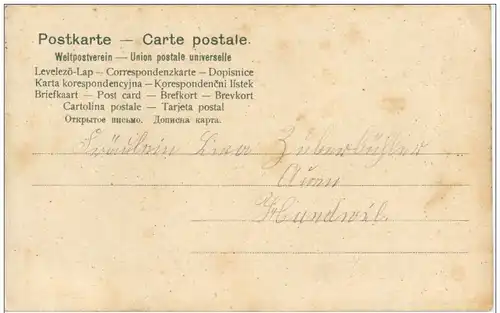 Postkarte — Carte postale.
Weltpostverein — Union postale universelle
Levelező-Lap — Correspondenzkarte — Dopisnice
Karta korespondencyjna — Korespondenční lístek
Briefkaart — Post card — Brefkort — Brevkort
Cartolina postale — Tarjeta postal
Открытое письмо. Дописна карта.
Fräulein Lina Zuberbühler
Auen
Hundwil